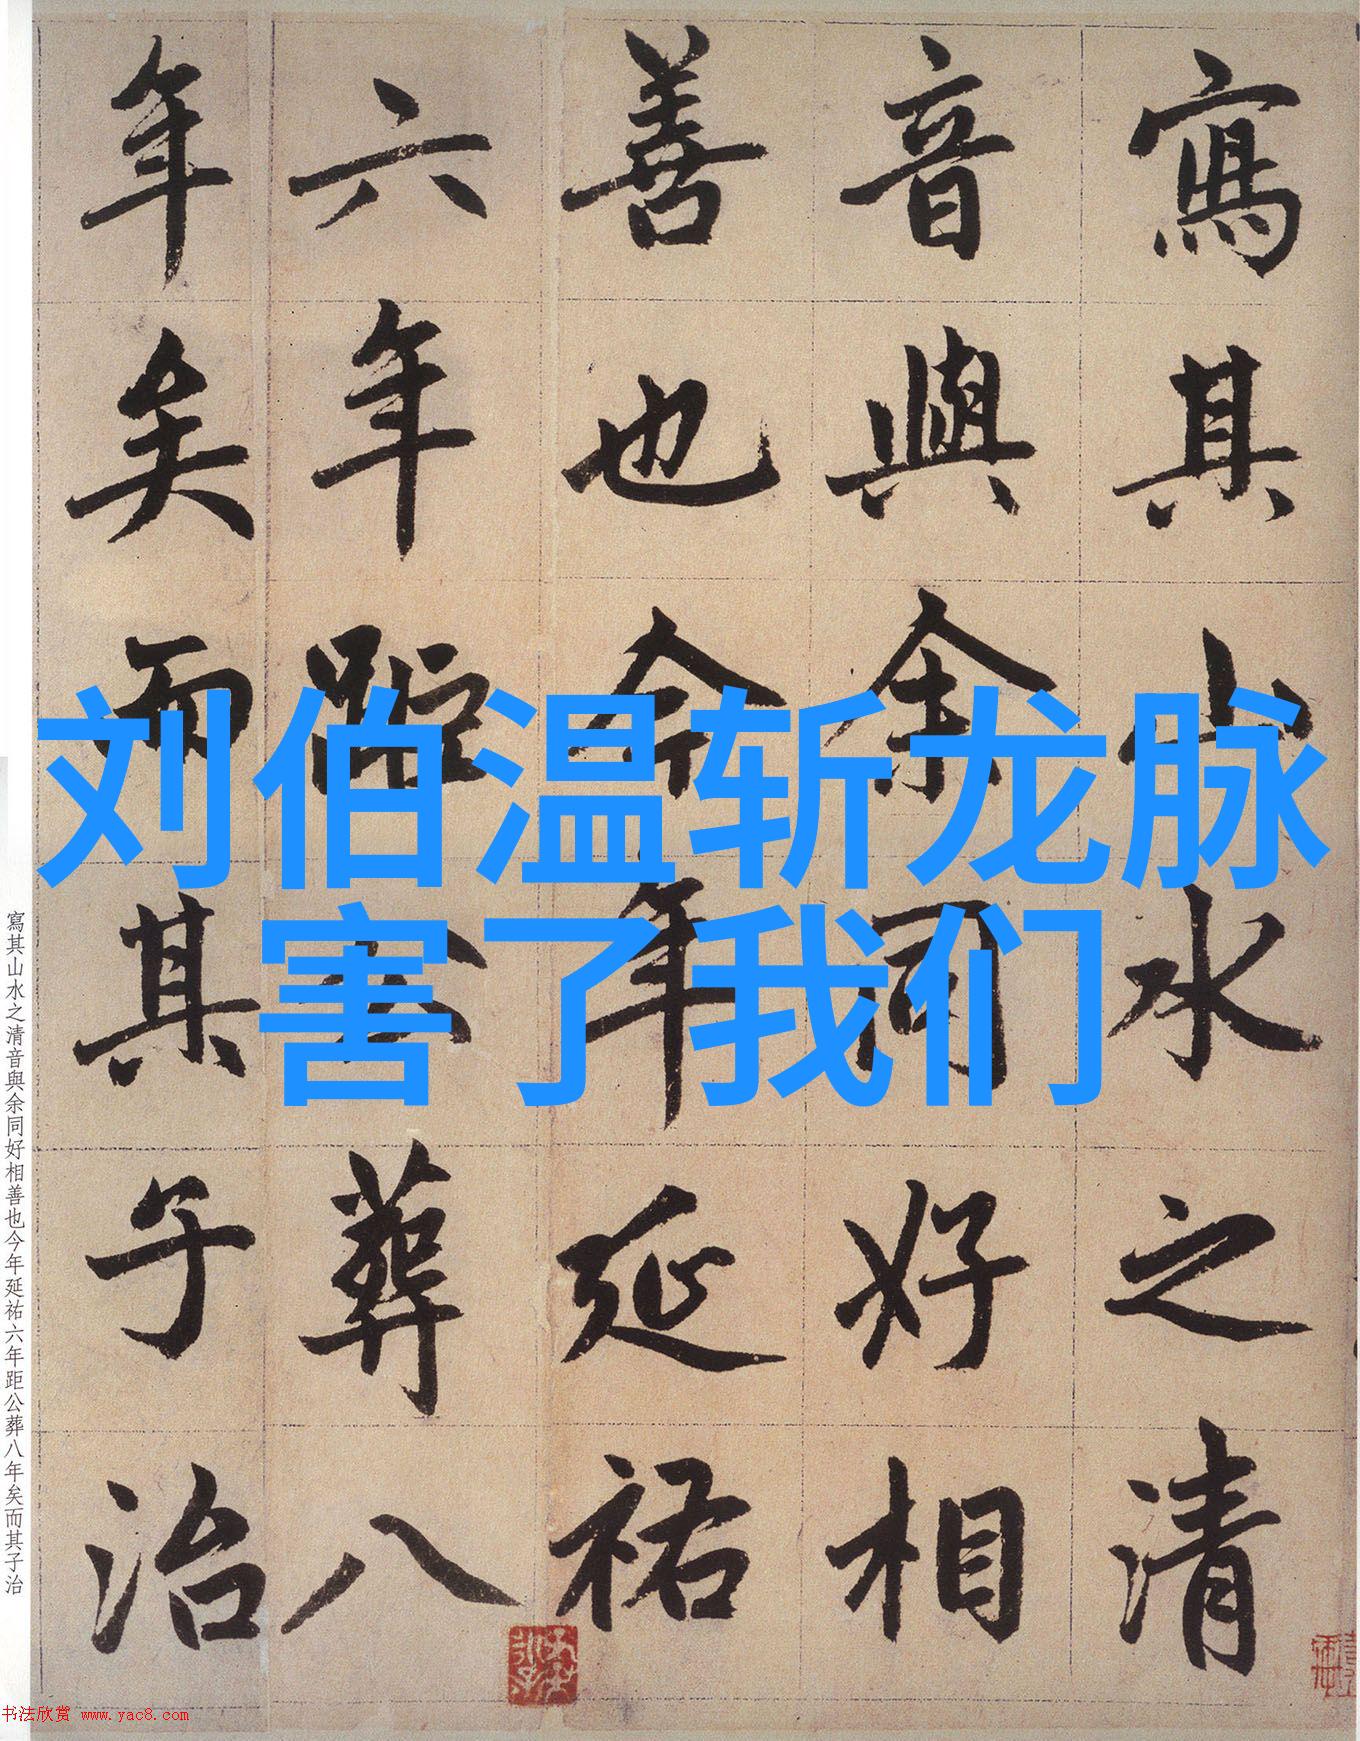 刘伯温斩龙脉
害了我们
寫其山水之清
音與余同好相
善也今年延祐
六年距公葬八
年矣而其子治
寫其山水之清音與余同好相善也今年延祐六年距公葬八年矣而其子治
书法欣赏 www.yac8.com